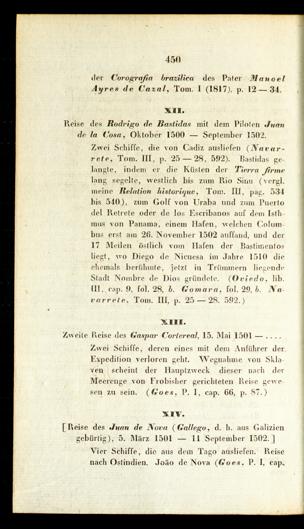 450
der Corografia brazilica des Pater Manoel
Ayres de Cazal, Tom. I (1817), p. 12 — 34.
XII.
Reise des Rodrigo de Bastidas mit dem Piloten Juan
de la Cosa, Oktober 1500 — September 1502.
Zwei Schiffe, die von Cadiz ausliefen (Navar-
rete, Tom. III, p. 25 — 28, 592). Bastidas ge-
langte, indem er die Küsten der Tierra firme
lang segelte, westlich bis zum Rio Sinu (vergl.
meine Relation historique, Tom. III, pag. 534
bis 540), zum Golf von Uraba und zum Puerto
del Retrete oder de los Escribanos auf dem Isth-
mus von Panama, einem Hafen, welchen Colum-
bus erst am 26. November 1502 auffand, und der
17 Meilen östlich vom Hafen der Bastimentos
liegt, wo Diego de Nicuesa im Jahre 1510 die
ehemals berühmte, jetzt in Trümmern liegende
Stadt Nombre de Dios gründete. (Oviedo, lib.
III, cap. 9, fol. 28, b. Gomara, fol. 29, b. Na-
varrete, Tom. III, p. 25 — 28. 592.)
XIII.
Zweite Reise des Gaspar Cortereal, 15. Mai 1501 — ....
Zwei Schiffe, deren eines mit dem Anführer der
Expedition verloren geht. Wegnahme von Skla-
ven scheint der Hauptzweck dieser nach der
Meerenge von Frobisher gerichteten Reise gewe-
sen zu sein. (Goes, P. I, cap. 66, p. 87.)
XIV.
[Reise des Juan de Nova (Gallego, d. h. aus Galizien
gebürtig), 5. März 1501 — 11 September 1502.]
Vier Schiffe, die aus dem Tago ausliefen. Reise
nach Ostindien. João de Nova (Goes, P. I, cap.